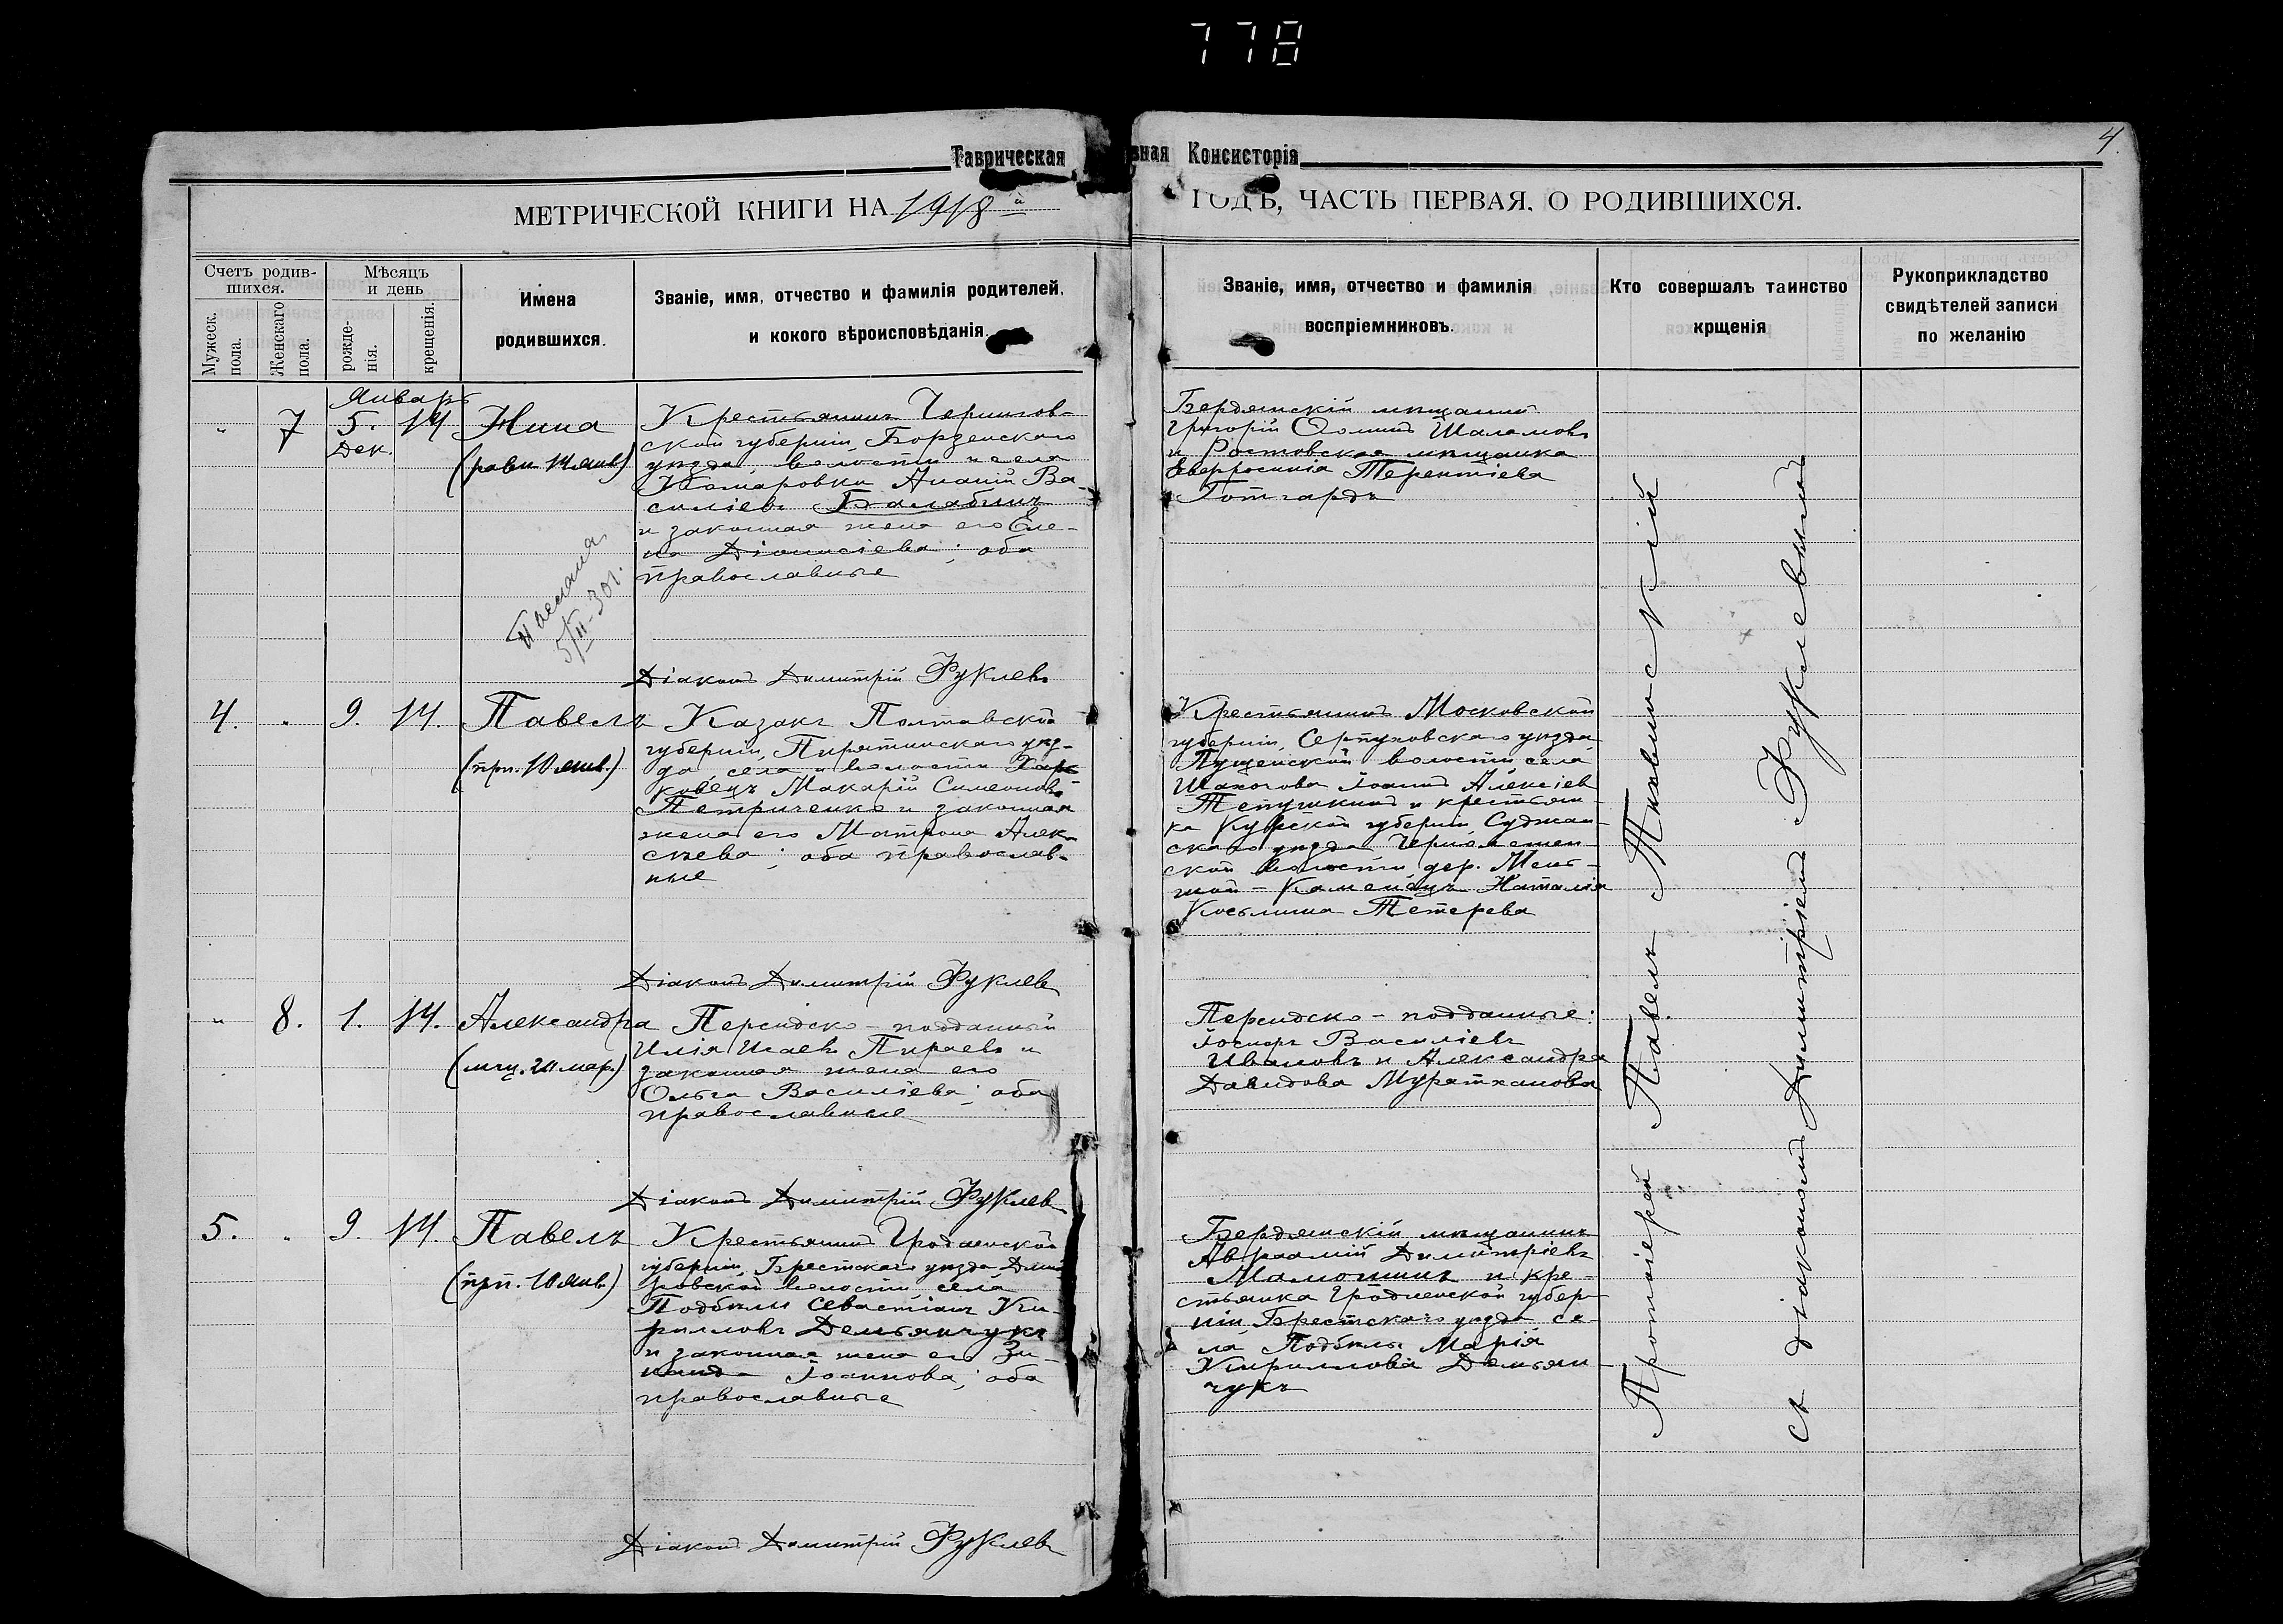 778
4.
Таврическая
вная Консисторія
МЕТРИЧЕСКОЙ КНИГИ НА 1918 й
ГОДЪ, ЧАСТЬ ПЕРВАЯ, О РОДИВШИХСЯ.
Счетъ родив-
шихся.
Мужеск.
пола.
Женскаго
пола.
Мѣсяцъ
и день
рожде-
нія.
крещенія.
Имена
родившихся.
Званіе, имя, отчество и фамилія родителей,
и кокого вѣроисповѣданія.
Званіе, имя, отчество и фамилія
воспріемниковъ.
Кто совершалъ таинство
крщенія
Рукоприкладство
свидѣтелей записи
по желанію
Январь
" 7 5. 14 Нина
Дек.
(равн. 14 янв.)
Крестьянинъ Чернигов-
ской губерніи, Борзенскаго
уѣзда, волости и села
Комаровки Ананій Ва-
силіевъ Балабинъ
и законная жена его Еле-
на Діонисіева; оба
православные
5/II-30г.
Діаконъ Димитрій Фуклевъ
Бердянскій мѣщанинъ
Григорій Ѳоминъ Шаламовъ
и Ростовская мѣщанка
Евфросинія Терентіева
Готгардъ
4. " 9. 14. Павелъ
(прп. 10 янв.)
Казакъ Полтавской
губерніи, Пирятинскаго уѣз-
да, села и волости Хар
ковецъ Макарій Симеоновъ
Петриченко и законная
жена его Матрона Алек-
сѣева; оба православ-
ные
Діаконъ Димитрій Фуклевъ
Крестьянинъ Московской
губерніи, Серпуховскаго уѣзда,
волости села
Іоаннъ Алексіевъ
и крестьян-
ка Курской губерніи, Суджан-
скаго уѣзда
ской волости, дер.
Каменецъ Наталія
Косьмина Тетерева
" 8. 1. 14. Александра
(мчц. 20 мар.)
Персидско-подданный
Илія Исаевъ Пираевъ и
законная жена его
Ольга Василіева; оба
православные
Діаконъ Димитрій Фуклевъ
Персидско-подданные:
Іосифъ Василіевъ
Ивановъ и Александра
Давидова Муратханова
5. " 9. 14. Павелъ
(прп. 10 янв.)
Крестьянинъ Гродненской
губерніи, Брестскаго уѣзда, Дми
ровской волости, села
Подбѣлы Севастіанъ Ки-
рилловъ Демьянчукъ
и законная жена его Зи-
наида Іоаннова; оба
православные
Діаконъ Димитрій Фуклевъ
Бердянскій мѣщанинъ
Авраамій Димитріевъ
Мамошинъ и кре-
стьянка Гродненской губер-
ніи, Брестскаго уѣзда се-
ла Подбѣлы Марія
Кириллова Демьян-
чукъ
Протоіерей Павелъ Тихвинскій
съ діакономъ Димитріемъ Фуклевымъ